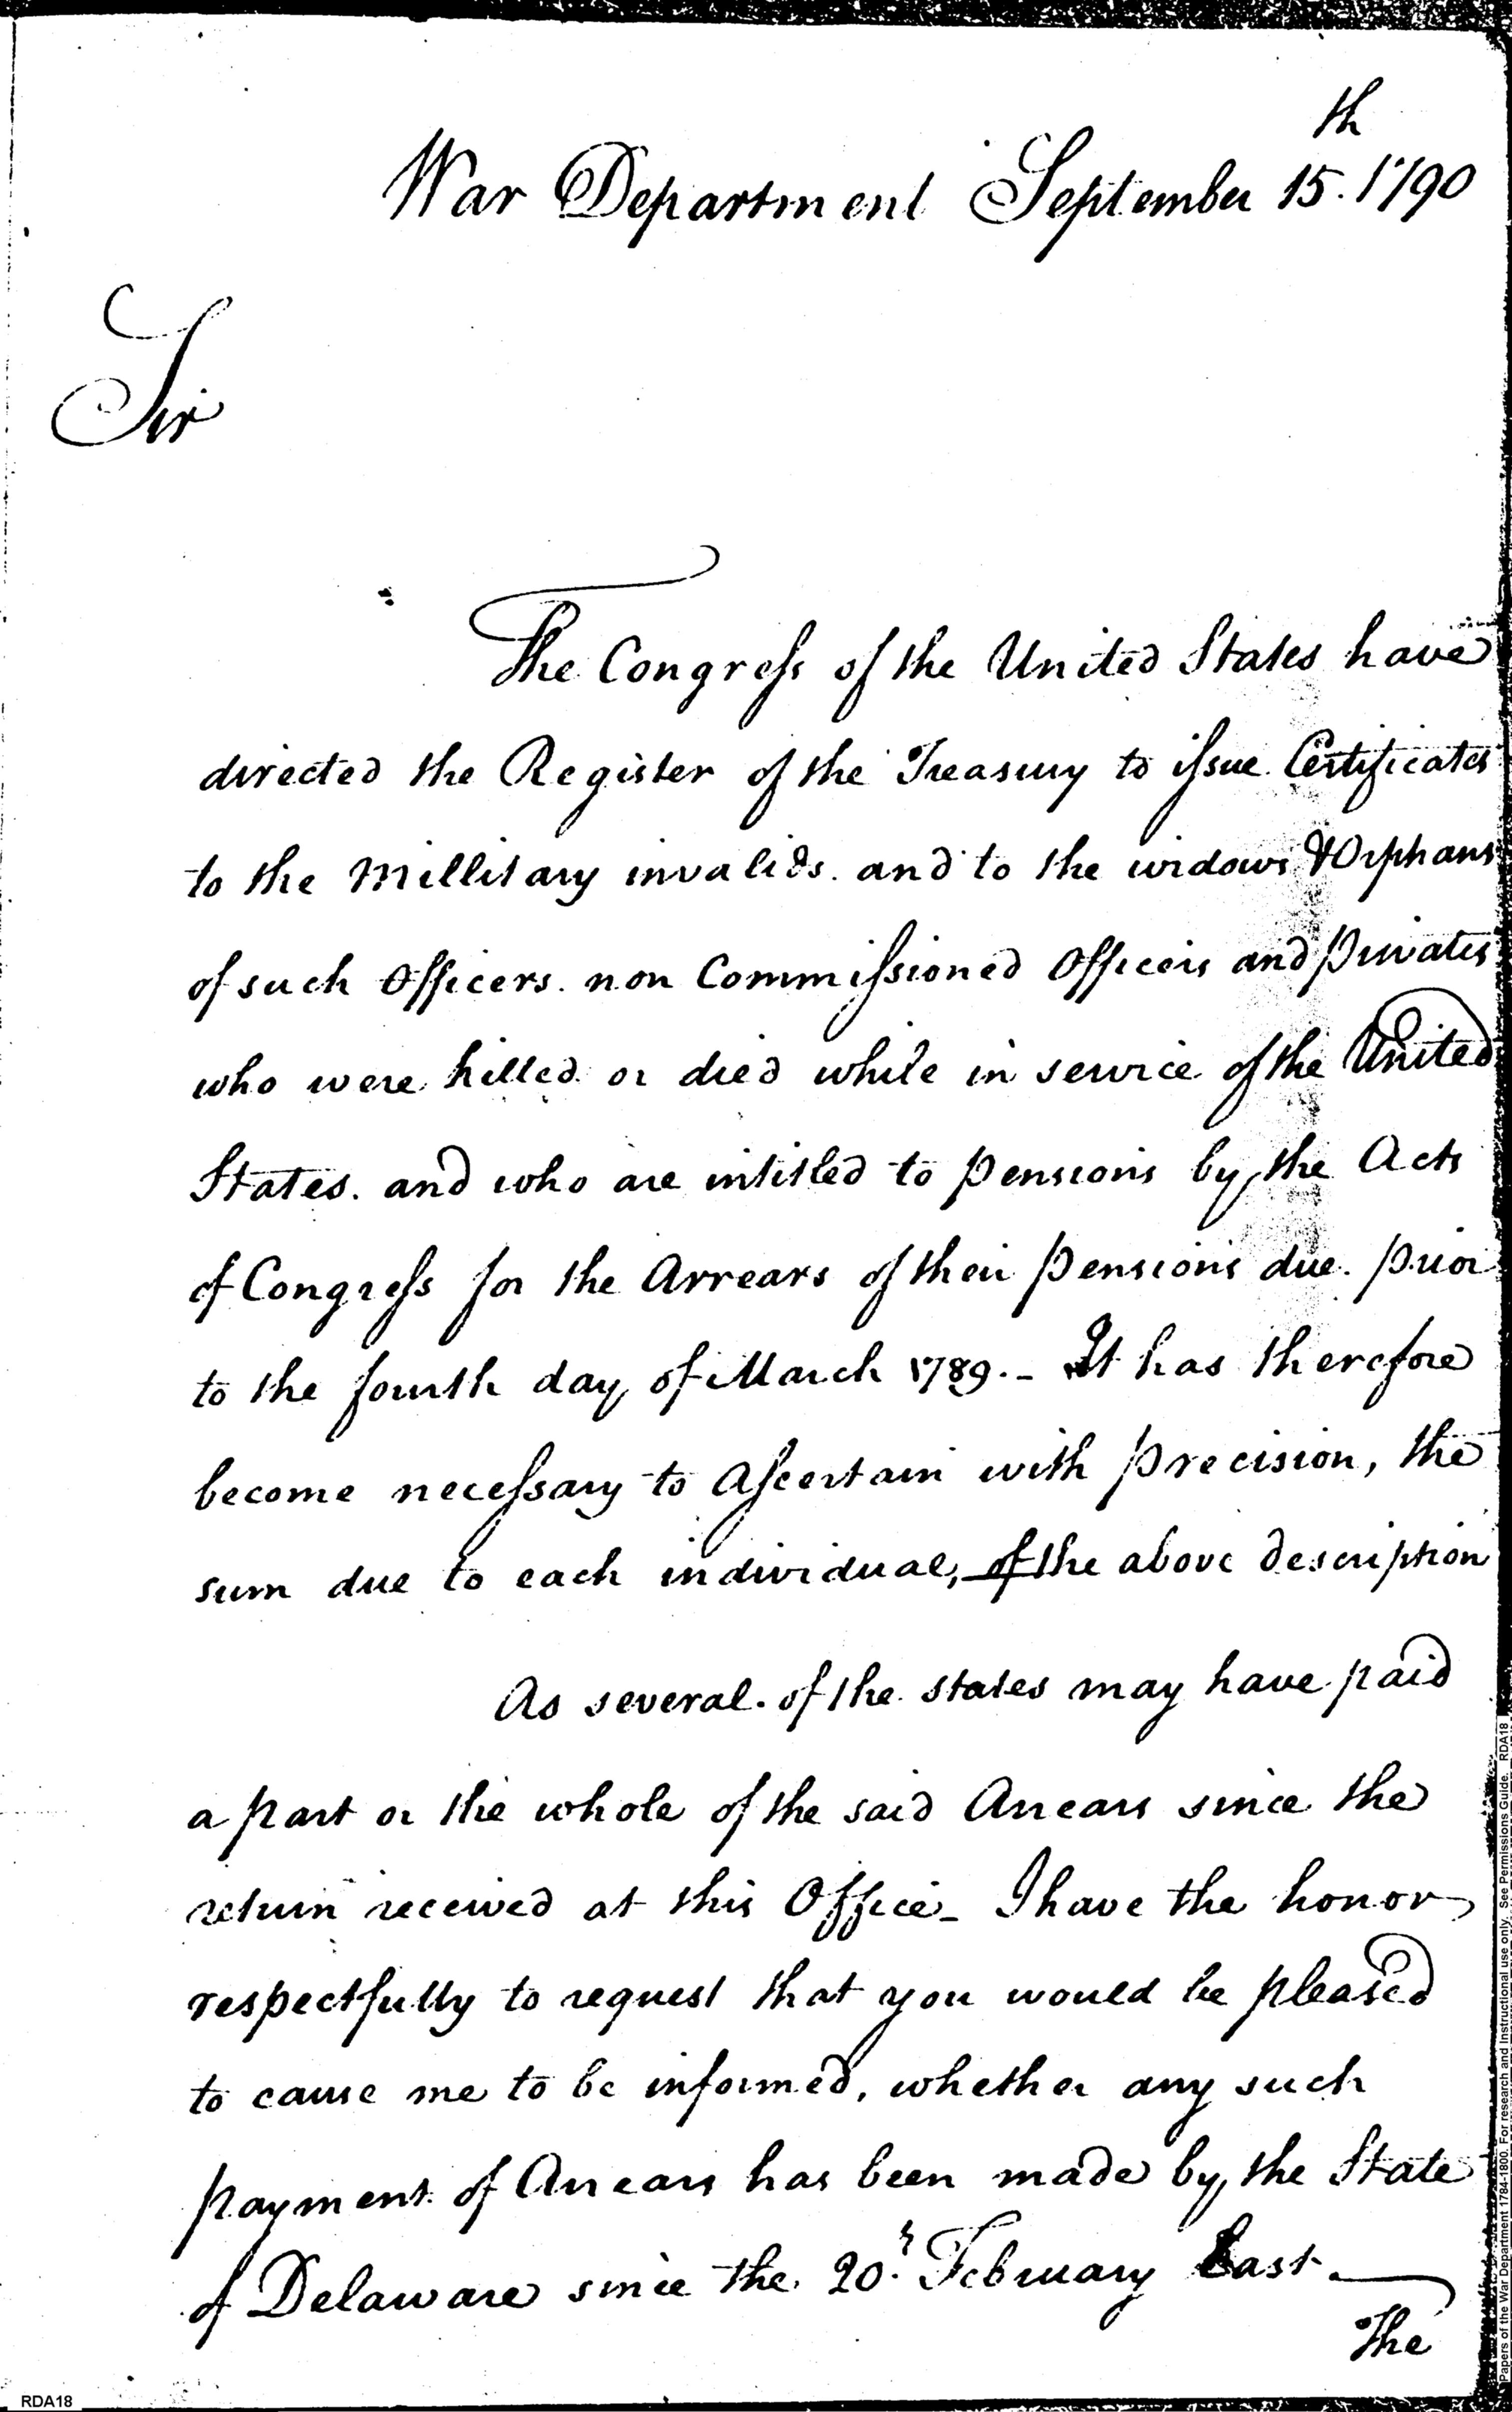 War Department September 15.th 1790
Sir
The Congress of the United States have
directed the Register of the Treasury to issue Certificates
to the Millitary invalids. and to the widows & Orphans
of such Officers. non Commissioned Officers and privates
who were killed or died while in service of the United
States. and who are intitled to pensions by the Acts
of Congress for the Arrears of their pensions due. prior
to the fourth day of March 1789.- It has therefore
become necessary to Ascertain with precision, the
sum due to each individual, of the above description
As several. of the states may have paid
a part or the whole of the said Arrears since the
return received at this Office- I have the honor
respectfully to request that you would be pleased
to cause me to be informed, whether any such
payment of Arrears has been made by the State
of Delaware since the 20.h February Last.—
The
RDA18
Papers of the War Department 1784-1800. For research and instructional use only. See Permissions Guide. RDA18